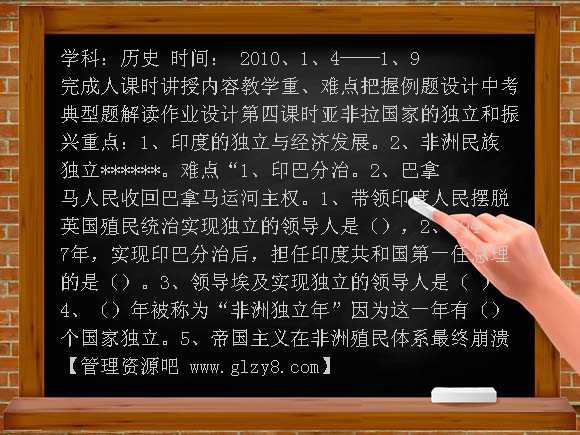 学科：历史 时间： 2010、1、4——1、9
完成人课时讲授内容教学重、难点把握例题设计中考
典型题解读作业设计第四课时亚非拉国家的独立和振
兴重点：1、印度的独立与经济发展。2、非洲民族
独立******。难点“1、印巴分治。2、巴拿
马人民收回巴拿马运河主权。1、带领印度人民摆脱
英国殖民统治实现独立的领导人是（），2、
7年，实现印巴分治后，担任印度共和国第一任总理
的是（）。3、领导埃及实现独立的领导人是（ ）
4、（）年被称为“非洲独立年”因为这一年有（）
个国家独立。5、帝国主义在非洲殖民体系最终崩溃
【管理资源吧 www.glzy8.com】